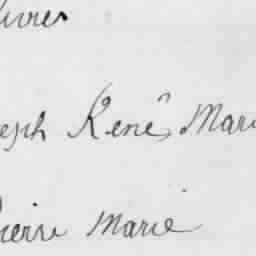 ivres
eph René Mari
Pierre Marie